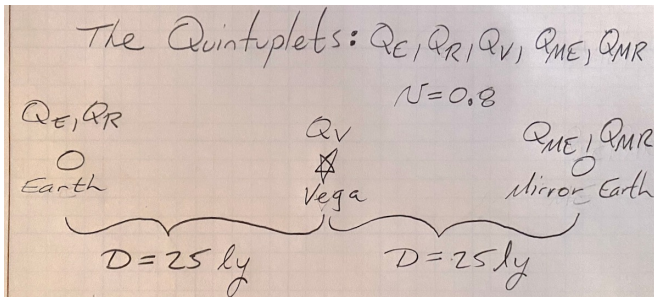 The Quintuplets: QE, QR, QV, QME, QMR
v=0.8
QE, QR
QV
QME, QMR
Earth
Vega
Mirror Earth
D=25 ly
D=25 ly